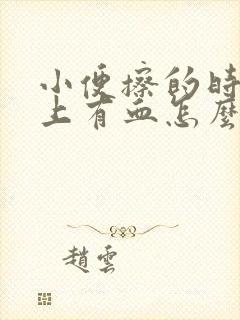 小便擦的時
上有血怎麼
趙雲